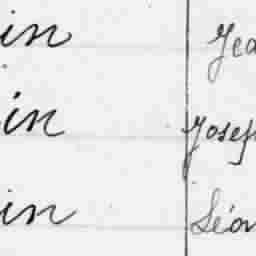 in Jea
in Josep
in Léon